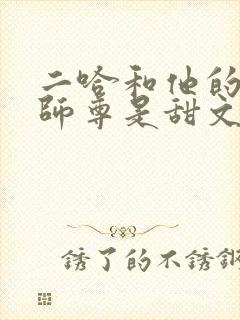 二哈和他的
師尊是甜文
銹了的不銹鋼